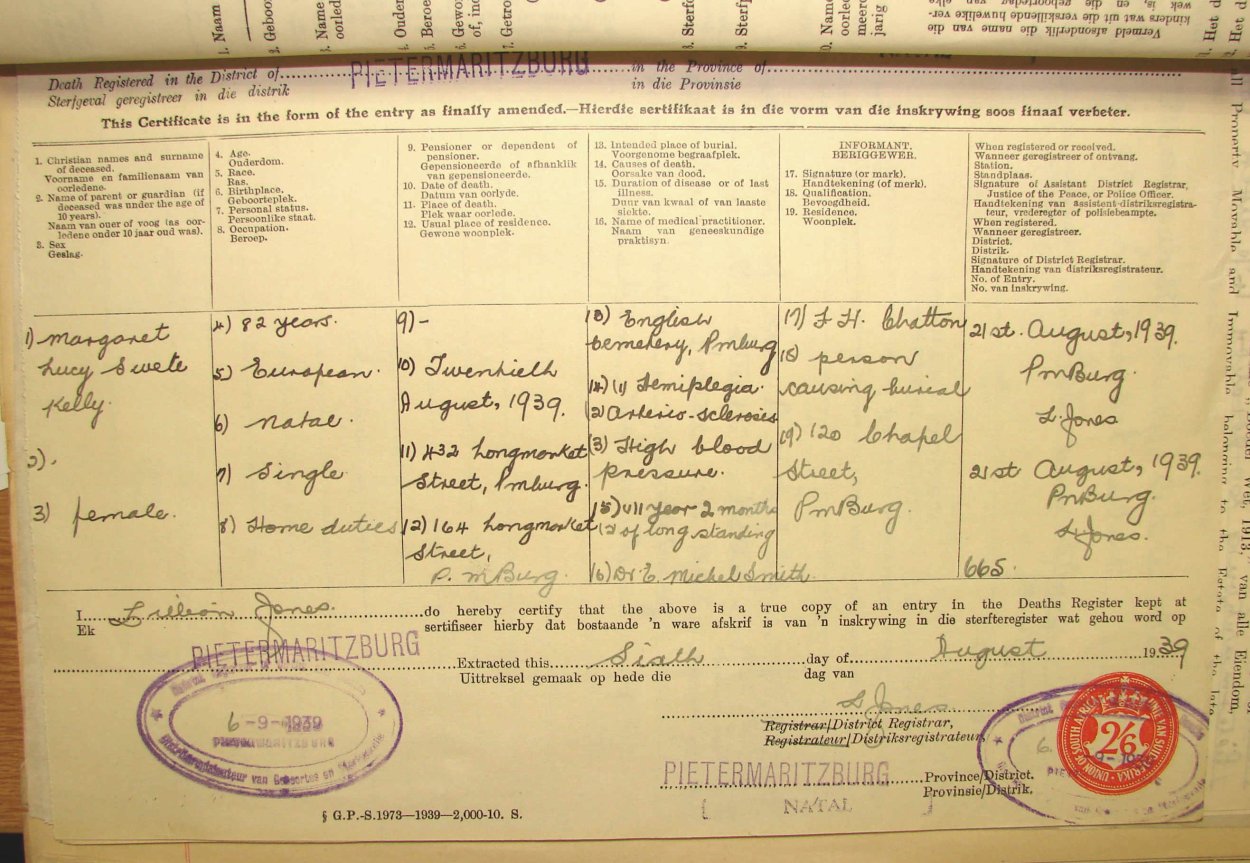 1. Naam
2. Geboor
3. Name
oorled
4. Ouder
5. Beroe
6. Gewo
of, ind
7. Getro
8. Sterf
9. Sterfp
10. Na
oorled
meerd
jarig
Vermeld afsonderlik die name van die
kinders wat uit die verskillende huwelike ver-
wek is, en die geboortedag van elke
Death Registered in the District of PIETERMARITZBURG in the Province of
Sterfgeval geregistreer in die distrik in die Provinsie
This Certificate is in the form of the entry as finally amended.—Hierdie sertifikaat is in die vorm van die inskrywing soos finaal verbeter.
1. Christian names and surname
of deceased.
Voorname en familienaam van
oorledene.
2. Name of parent or guardian (if
deceased was under the age of
10 years).
Naam van ouer of voog (as oor-
ledene onder 10 jaar oud was).
3. Sex
Geslag.
4. Age.
Ouderdom.
5. Race.
Ras.
6. Birthplace.
Geboorteplek.
7. Personal status.
Persoonlike staat.
8. Occupation.
Beroep.
9. Pensioner or dependent of
pensioner.
Gepensioneerde of afhanklik
van gepensioneerde.
10. Date of death.
Datum van oorlyde.
11. Place of death.
Plek waar oorlede.
12. Usual place of residence.
Gewone woonplek.
13. Intended place of burial.
Voorgenome begraafplek.
14. Causes of death.
Oorsake van dood.
15. Duration of disease or of last
illness.
Duur van kwaal of van laaste
siekte.
16. Name of medical practitioner.
Naam van geneeskundige
praktisyn.
INFORMANT.
BERIGGEWER.
17. Signature (or mark).
Handtekening (of merk).
18. Qualification.
Bevoegdheid.
19. Residence.
Woonplek.
When registered or received.
Wanneer geregistreer of ontvang.
Station.
Standplaas.
Signature of Assistant District Registrar,
Justice of the Peace, or Police Officer.
Handtekening van assistent-distriksregistra-
teur, vrederegter of polisiebeampte.
When registered.
Wanneer geregistreer.
District.
Distrik.
Signature of District Registrar.
Handtekening van distriksregistrateur.
No. of Entry.
No. van inskrywing.
1) Margaret
Lucy Swete
Kelly.
2).
3) female.
4) 82 years.
5) European.
6) Natal.
7) Single
8) Home duties
9) -
10) Twentieth
August, 1939.
11) 432 Longmarket
Street, Pmburg.
12) 164 Longmarket
Street,
P. mBurg.
13) English
Cemetery, Pmburg
14) (1) Hemiplegia.
(2) Arterio-sclerosis
(3) High blood
pressure.
15) (1) 1 year 2 months
(2) of long standing
16) Dr E. Michel Smith.
17) F. H. Chatton
18) person
causing burial
19) 120 Chapel
Street,
PmBurg.
21st. August, 1939.
PmBurg.
L. Jones
21st August, 1939.
PmBurg.
L Jones.
665.
I Lilleon Jones. do hereby certify that the above is a true copy of an entry in the Deaths Register kept at
Ek sertifiseer hierby dat bostaande 'n ware afskrif is van 'n inskrywing in die sterfteregister wat gehou word op
PIETERMARITZBURG Extracted this Sixth day of August 1939
Uittreksel gemaak op hede die dag van
L Jones
6-9-1939
PIETERMARITZBURG
Distriksregistrateur van Geboortes en Sterfgevalle
Registrar/District Registrar,
Registrateur/Distriksregistrateur,
UNION OF SOUTH AFRICA
UNIE VAN SUID-AFRIKA
2/6
PIETERMARITZBURG Province/District.
NATAL Provinsie/Distrik.
§ G.P.-S.1973—1939—2,000-10. S.